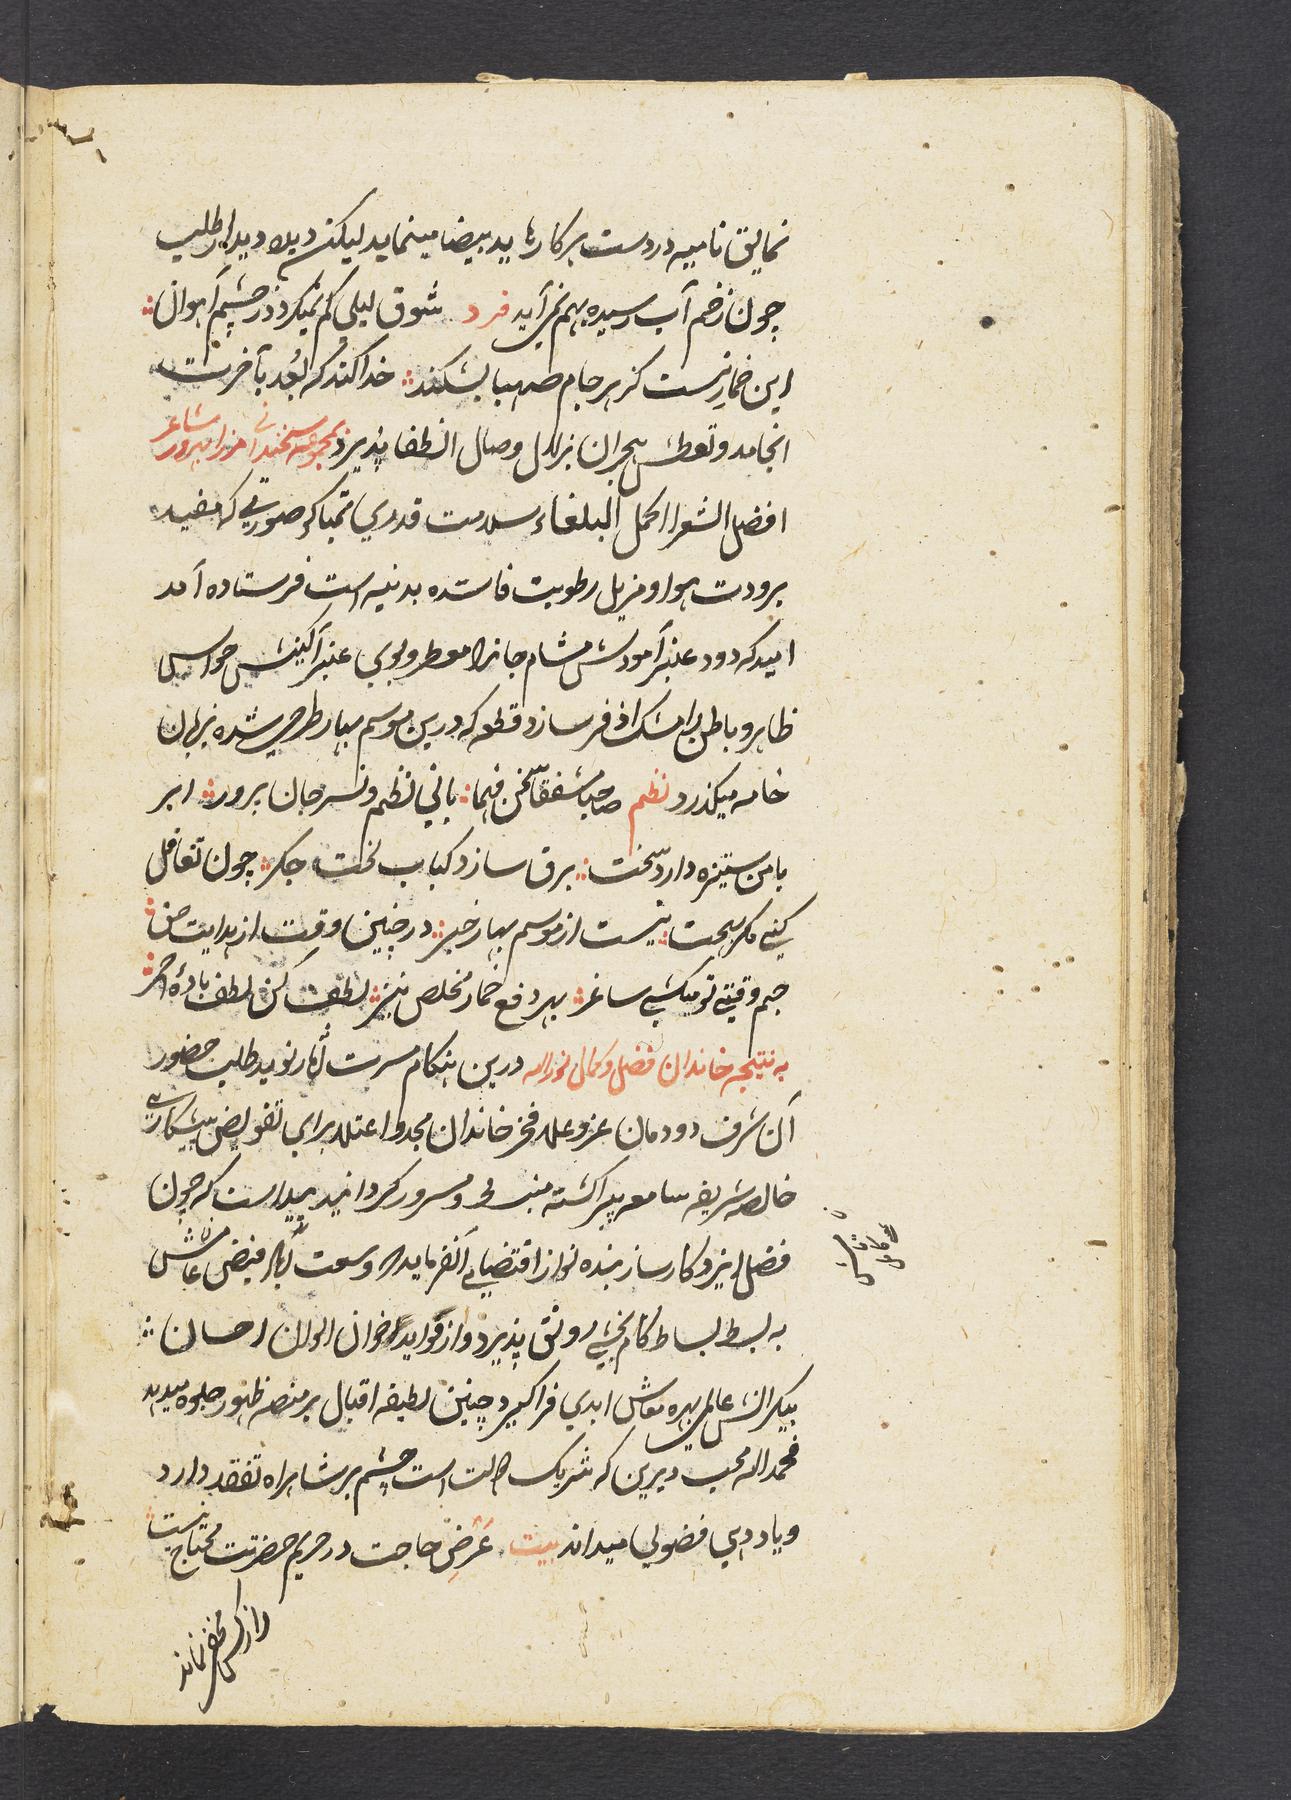 نمایق نامیه در دست هر کارها ید بیضا مینماید لیکن دیده دیدار طلب
چون زخم آب رسیده بهم نمی آید فرد شوق لیلی کم نمیکردد ز چشم آهوان
این خمار نیست کز هر جام صهبا بشکند خدا کند که بعد بآخرت
انجامد و تعطش هجران بزلال وصال انطفا پذیرد بمجموعه سخندانی مرزا سرور شاعر
افضل الشعرا اکمل البلغاء سلامت قدری تمباکو صورتی که مفید
برودت هوا و مزیل رطوبت فاسده بدنیه است فرستاده آمد
امید که دود عنبر آمودش مشام جانرا معطر و بوی عنبر آکینش حواس
ظاهر و باطن را مشک اذفر سازد قطعه که درین موسم بهار طرحی شده بزبان
خامه میکذرد نظم صاحب مشفقا سخن فهما بانی نظم و نسر جان پرور ابر
با من ستیزه دارد سخت برق سازد کباب لخت جکر چون تغافل
کنی مکر بیجت نیست از موسم بهار خبر در چنین وقت از هدایت من
جم وقتی تو میکشی ساغر بهر دفع خمار مخلص نیز لطف کن لطف بادهٔ احمر
به نتیجه خاندان فضل و کمال نورالله درین هنکام مسرت آثار نوید طلب حضور
آن شرف دودمان عز و علا فخر خاندان مجد و اعتلا برای تفویض پیشکاری
خالصه شریفه سامعه پیرا کشته منبسط و مسرور کردانید پیداست که چون
فضل ایزد کارساز بنده نواز اقتضای آن فرماید که وسعت آباد فیض عامش
به بسط بساط کام بخشی رونق پذیرد و از فواید خوان الوان احسان
بیکرانش عالمی بهره معاش ابدی فراکیرد چنین لطیفه اقبال بر منصه ظهور جلوه میدهد
فحمدالله محب دیرین که شریک حالت است چشم بر شاهراه تفقد دارد
و یاددهی فضولی میداند بیت عرض حاجت در حریم حضرتت محتاج نیست
راز کس مخفی نماند